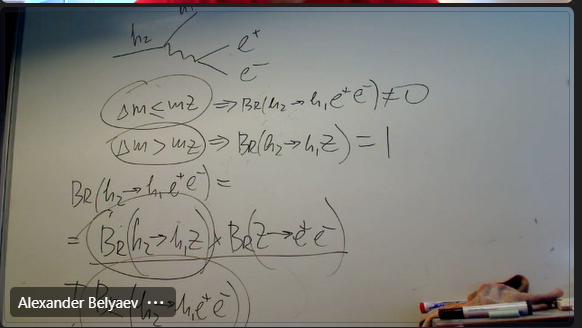 h₂ h₁ e⁺
e⁻
Δm ≤ mz ⇒ BR(h₂→h₁e⁺e⁻) ≠ 0
Δm > mz ⇒ BR(h₂→h₁Z) = 1
BR(h₂→h₁e⁺e⁻) =
= BR(h₂→h₁Z) × BR(Z→e⁺e⁻)
+ BR(h₂→h₁e⁺e⁻)
Alexander Belyaev ···